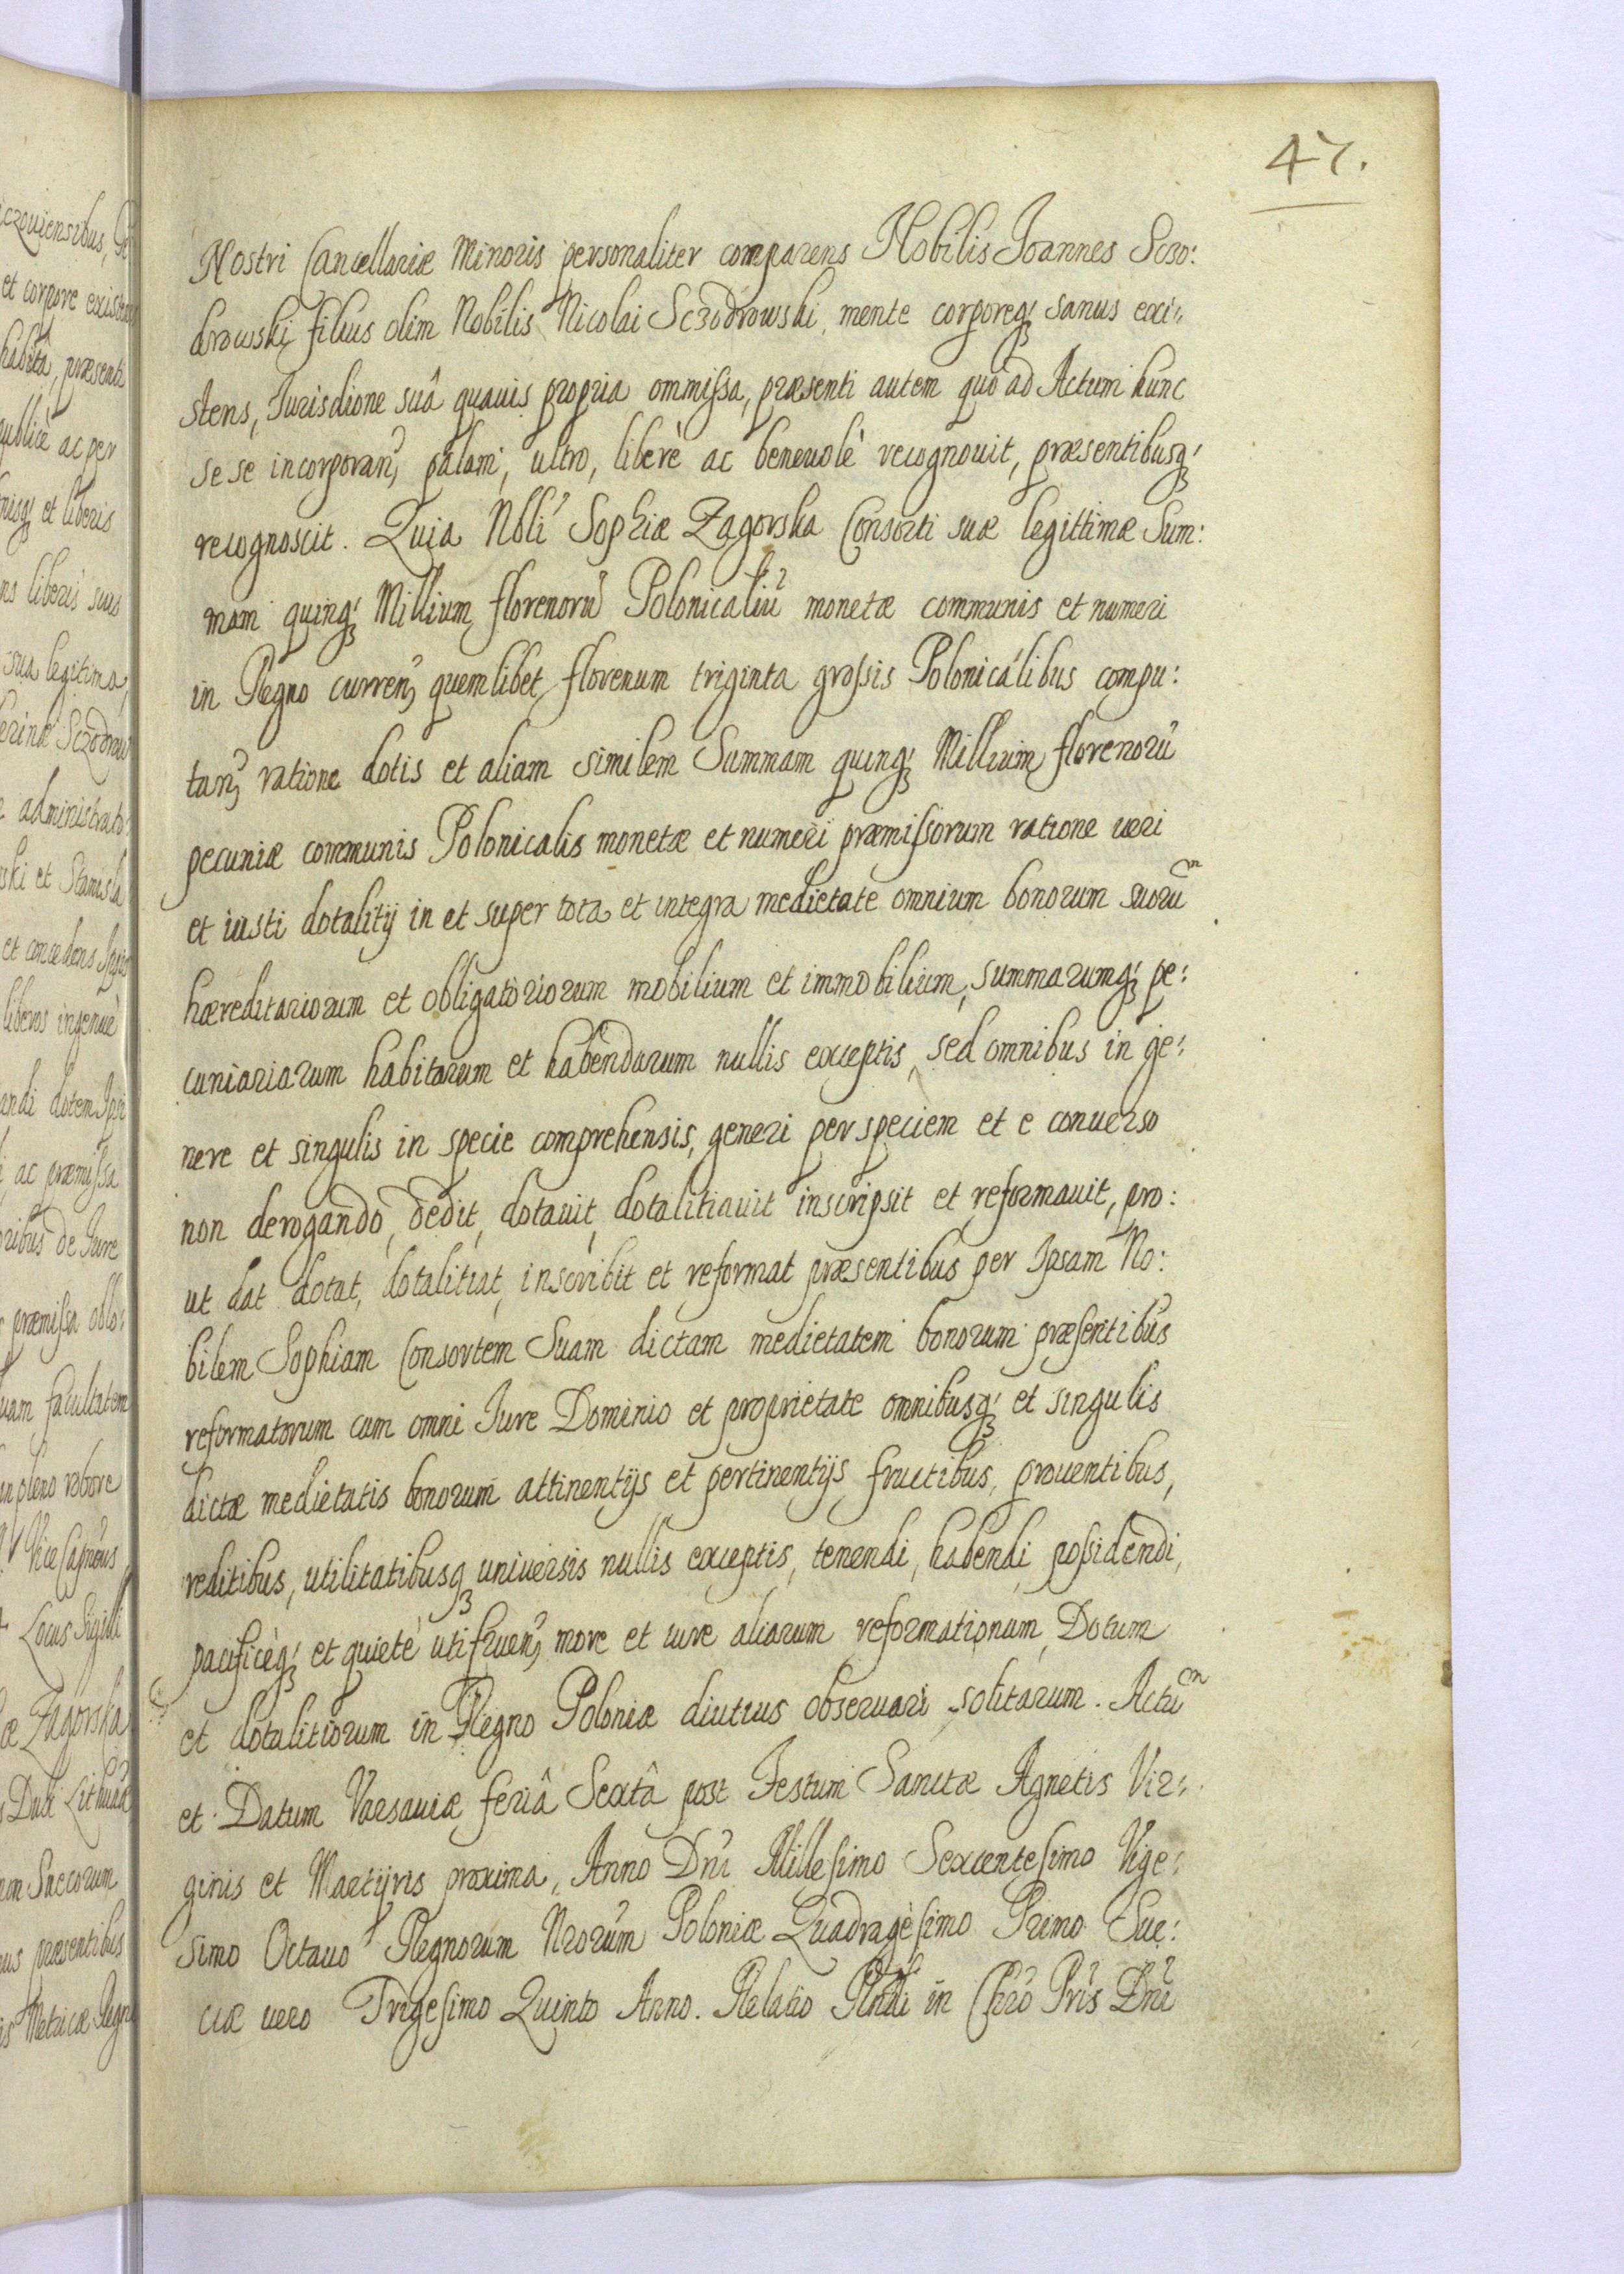 47.
Nostri Cancellariæ Minoris personaliter comparens Nobilis Joannes Sczo:
drowski filius olim Nobilis Nicolai Sczodrowski, mente corporeq́ꝫ sanus exi:
stens, Jurisdione suâ quauis propria ommissa, præsenti autem quo ad Actum hunc
se se incorporanꝫ, palam, ultro, liberè ac beneuolè recognouit, præsentibusq́ꝫ
recognoscit. Quia Nbli Sophiæ Zagorska Consorti suæ legittimæ Sum:
mam quinq́ꝫ Millium florenorũ Polonicaliũ monetæ communis et numeri
in Regno currenꝫ quemlibet florenum triginta grossis Polonicálibus compu:
tanꝫ ratione dotis et aliam similem Summam quinq́ꝫ Millium florenorũ
pecuniæ communis Polonicalis monetæ et numeri præmissorum ratione ueri
et iusti dotalitij in et super tota et integra medietate omnium bonorum suorũm
hæreditariorum et obligatoriorum mobilium et immobilium, summarumq́ꝫ pe:
cuniariarum habitarum et habendarum nullis exceptis, sed omnibus in ge:
nere et singulis in specie comprehensis, generi per speciem et e conuerso
non derogando, dedit, dotauit, dotalitiauit inscripsit et reformauit, pro:
ut dat dotat, dotalitiat, inscribit et reformat præsentibus per Ipsam No:
bilem Sophiam Consortem Suam dictam medietatem bonorum præsentibus
reformatorum cum omni Jure Dominio et proprietate omnibusq́ꝫ et singulis
dictæ medietatis bonorum attinentijs et pertinentijs fructibus, prouentibus,
reditibus, utilitatibusqꝫ uniuersis nullis exceptis, tenendi, habendi possidendi,
pacificèq́ꝫ et quietè utifruenꝫ more et iure aliarum reformationum Dotum
et dotalitiorum in Regno Poloniæ diutius obseruari solitarum. Actũm
et Datum Varsauiæ feriâ Sextâ post Festum Sanctæ Agnetis Vir:
ginis et Martijris proxima, Anno Dni Millesimo Sexcentesimo Vige:
simo Octauo Regnorum Nrorum Poloniæ Quadragèsimo Primo Sue:
ciæ uero Trigesimo Quinto Anno. Relatio Rndi in Chro Pris Dni